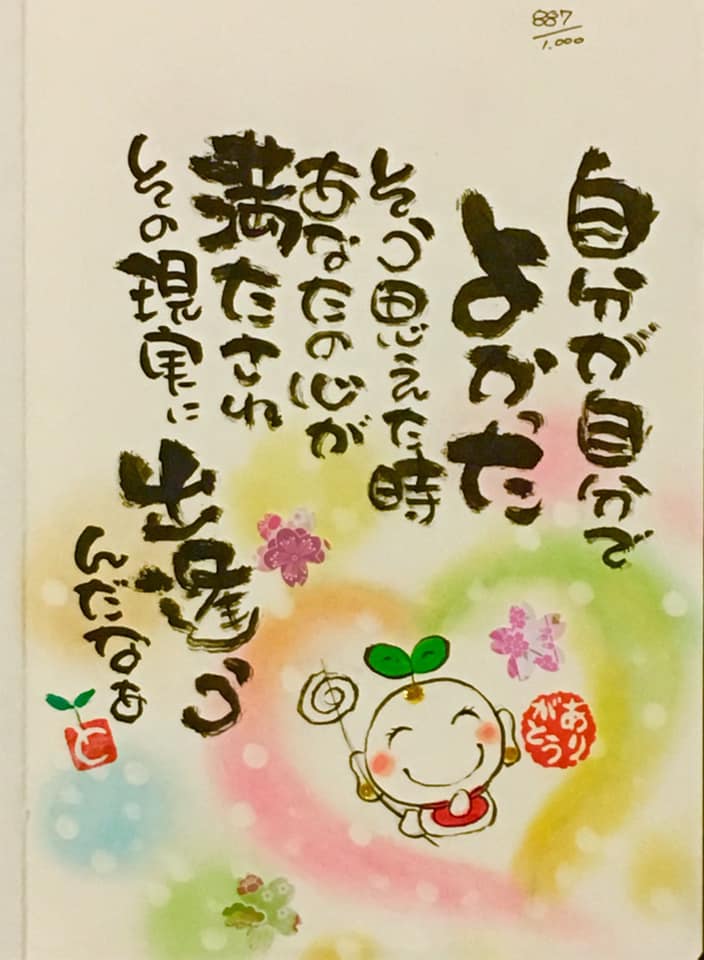 887
1.000
自分が自分で
よかった
そう思えた時
あなたの心が
満たされ
その現実に
出逢う
んだなあ
と
あり
がとう